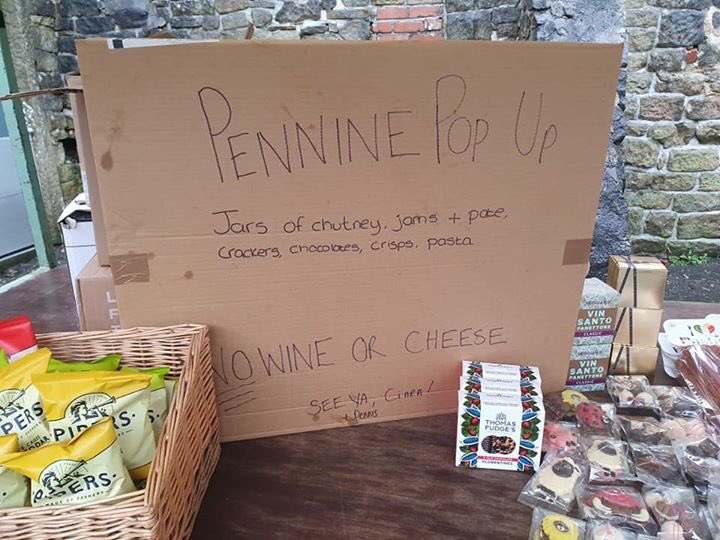 PENNINE POP UP
Jars of chutney, jams + pate,
crackers, chocolates, crisps, pasta
NO WINE OR CHEESE
SEE YA, CIARA!
x DENNIS
THOMAS
FUDGE'S
FLORENTINES
VIN
SANTO
PANETTONE
CLASSIC
VIN
SANTO
PANETTONE
CLASSIC
PIPERS
PERS
PERS